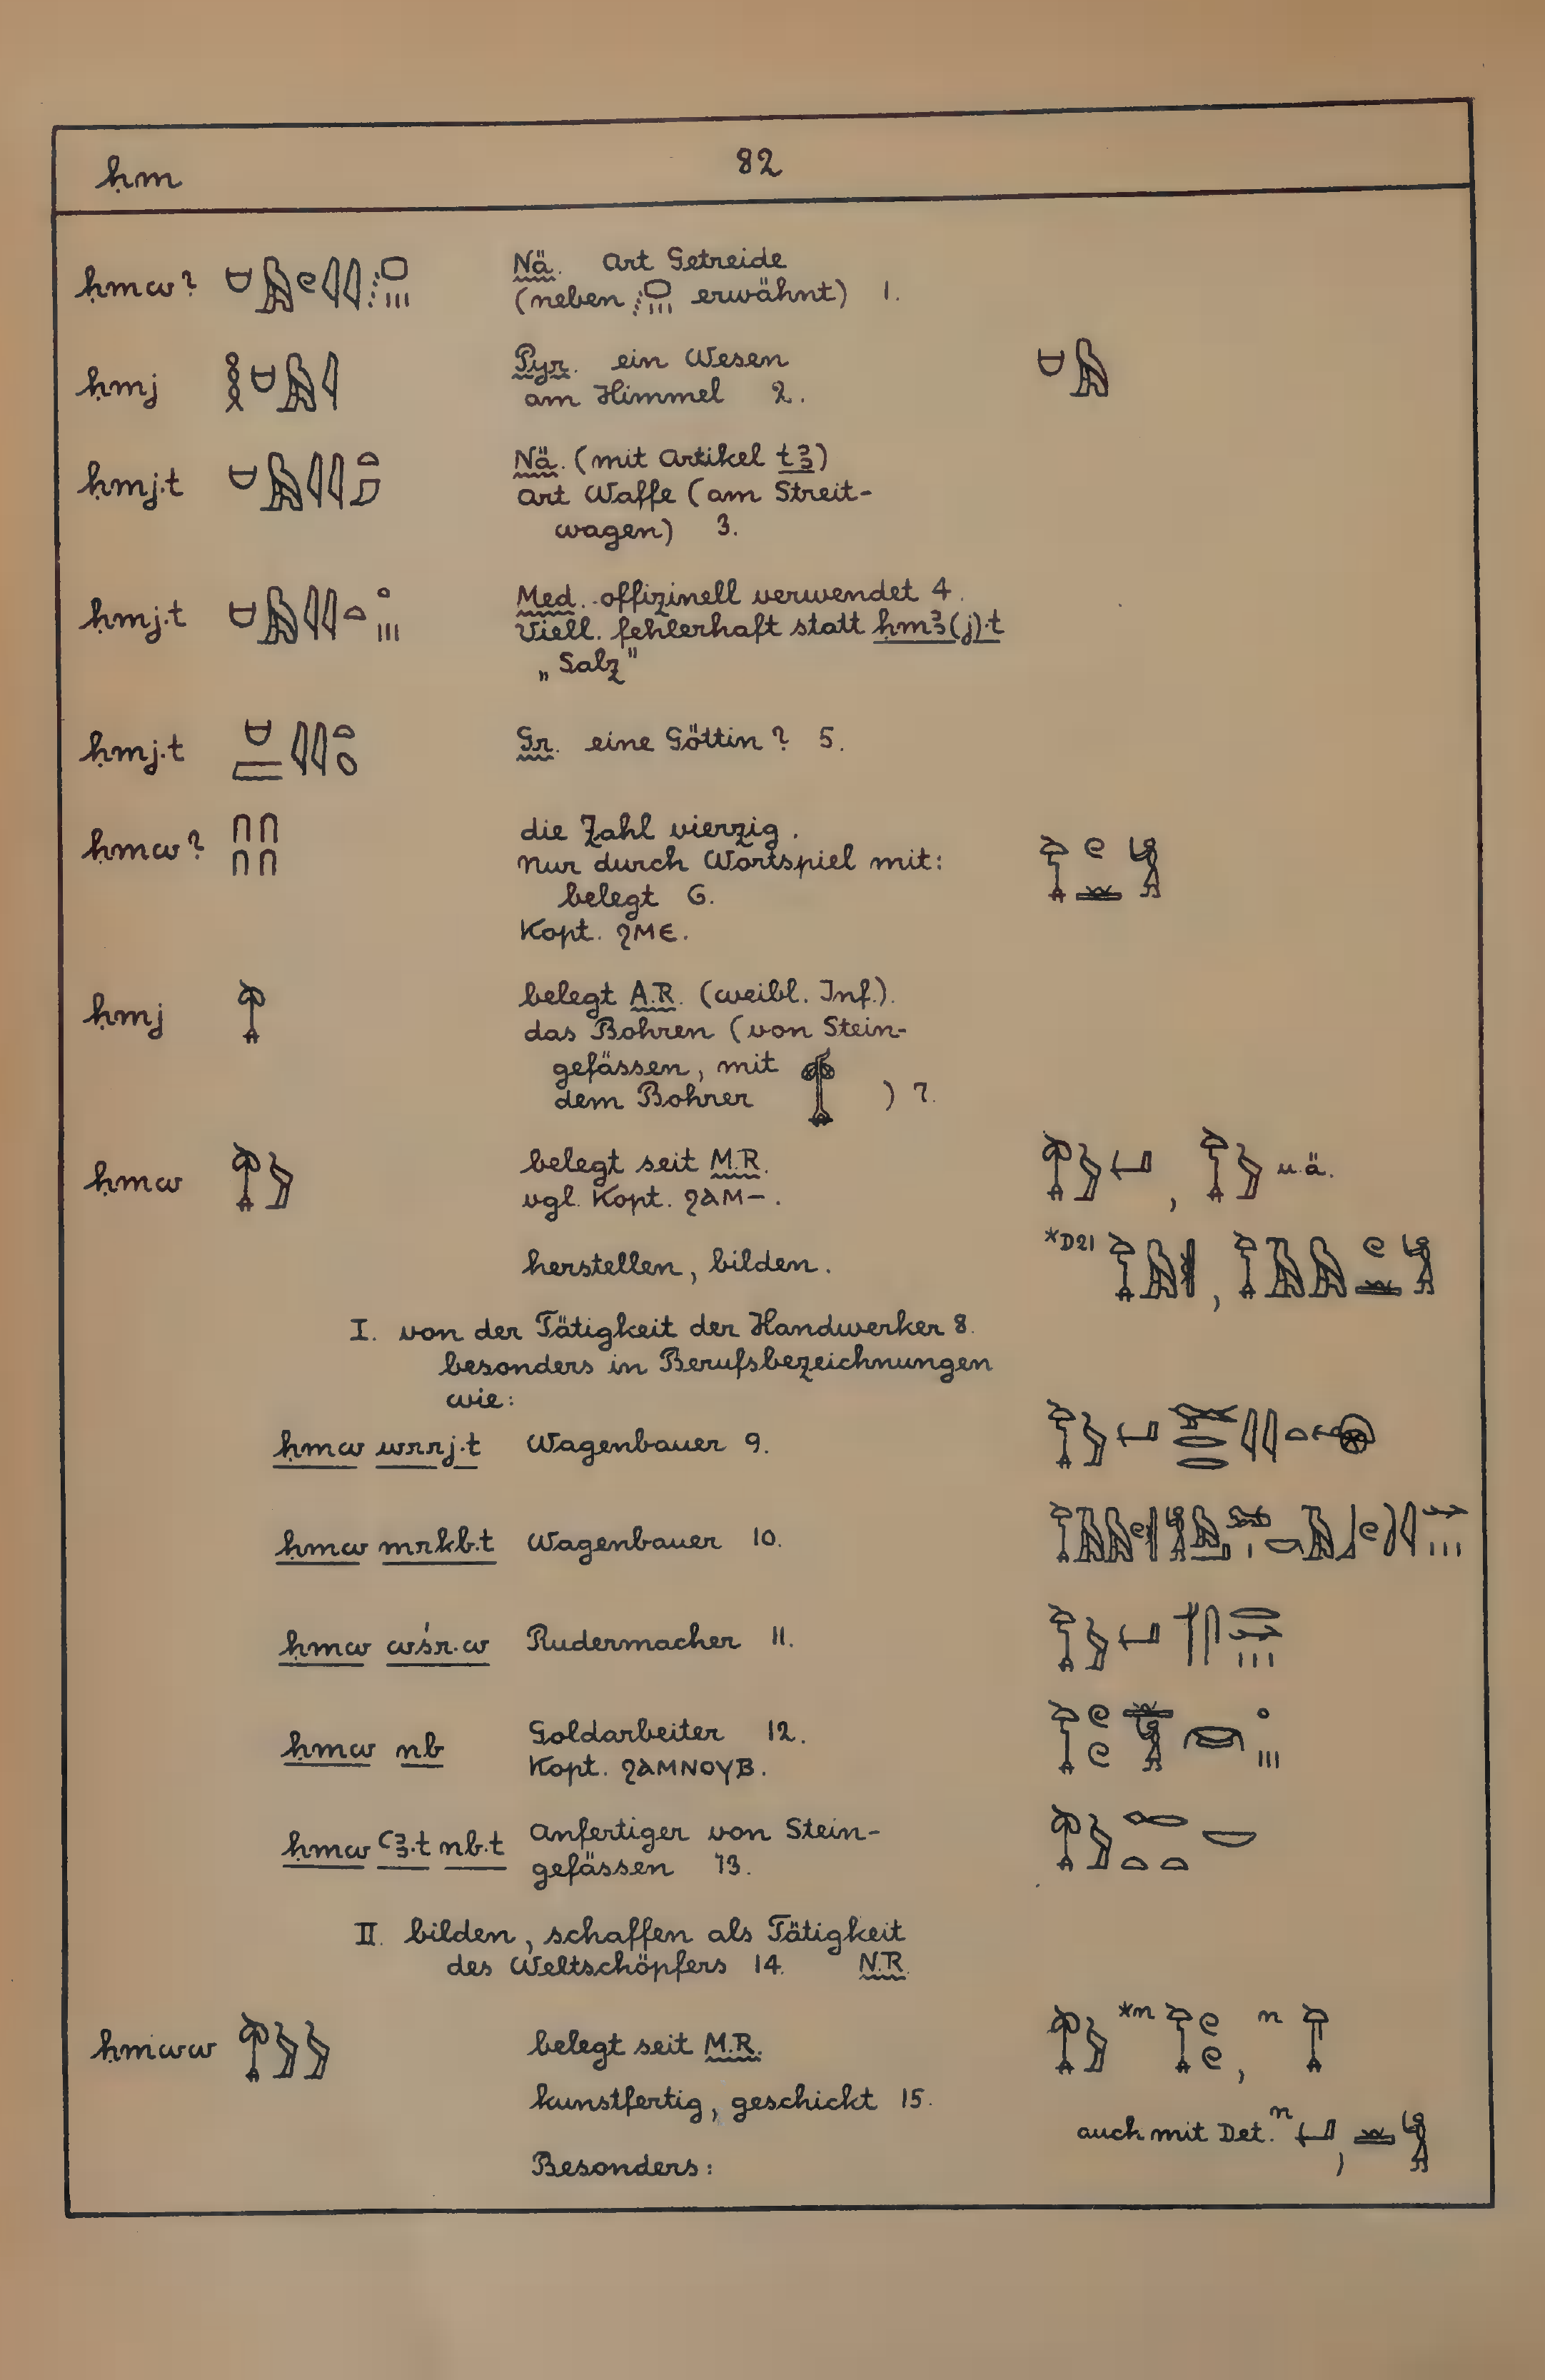 ḥm 82
ḥmw?
Nä. Art Getreide
(neben erwähnt) 1.
ḥmj
Pyr. ein Wesen
am Himmel 2.
ḥmj.t
Nä. (mit Artikel tꜣ)
Art Waffe (am Streit-
wagen) 3.
ḥmj.t
Med. offizinell verwendet 4.
Viell. fehlerhaft statt ḥmꜣ(j).t
„Salz"
ḥmj.t
Gr. eine Göttin? 5.
ḥmw?
die Zahl vierzig.
Nur durch Wortspiel mit:
belegt 6.
Kopt. ϩⲙⲉ.
ḥmj
belegt A.R. (weibl. Inf.).
das Bohren (von Stein-
gefässen, mit
dem Bohrer ) 7.
ḥmw
belegt seit M.R.
vgl. Kopt. ϩⲁⲙ-.
, u.ä.
herstellen, bilden.
*D21 ,
I. von der Tätigkeit der Handwerker 8.
besonders in Berufsbezeichnungen
wie:
ḥmw wrrj.t Wagenbauer 9.
ḥmw mrkb.t Wagenbauer 10.
ḥmw wśr.w Rudermacher 11.
ḥmw nb
Goldarbeiter 12.
Kopt. ϩⲁⲙⲛⲟⲩⲃ.
ḥmw ꜥꜣ.t nb.t
Anfertiger von Stein-
gefässen 13.
II. bilden, schaffen als Tätigkeit
des Weltschöpfers 14. N.R.
ḥmww
belegt seit M.R.
*n , n
kunstfertig, geschickt 15.
auch mit Det. n ,
Besonders: